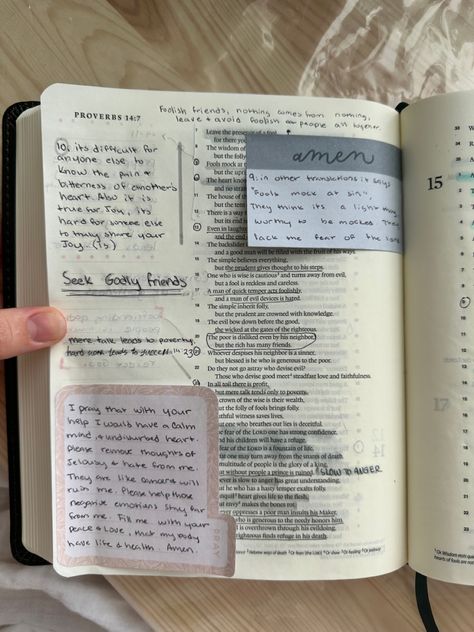 PROVERBS 14:7
Foolish friends, nothing comes from nothing,
leave + avoid foolish people all together.
10. its difficult for
anyone else to
know the pain &
bitterness of another's
heart. Also it is
true for Joy, its
hard for someone else
to truly share your
Joy. (15)
Seek Godly friends
mere talk leads to poverty,
hard work leads to success. 23
I pray that with your
help I would have a calm
mind & undisturbed heart.
Please remove thoughts of
Jelousy & hate from me!
They are like cancer & will
ruin me. Please help those
negative emotions stay far
from me. Fill me with your
peace & Love, that my body
have life & health. Amen.
PRAY
amen
9. in other translations it says
"Fools mock at sin".
They think its a light thing
worthy to be mocked they
lack the fear of the Lord
Leave the presence of a fool,
for there you
The wisdom of
but the folly
Fools mock at
but the upright
The heart knows
and no
The house of the
but the tent
There is a way
but its end
Even in laughter
and the end
The backslider
and a good man will be filled with the fruit of his ways.
The simple believes everything,
but the prudent gives thought to his steps.
One who is wise is cautious and turns away from evil,
but a fool is reckless and careless.
A man of quick temper acts foolishly,
and a man of evil devices is hated.
The simple inherit folly,
but the prudent are crowned with knowledge.
The evil bow down before the good,
the wicked at the gates of the righteous.
The poor is disliked even by his neighbor,
but the rich has many friends.
Whoever despises his neighbor is a sinner,
but blessed is he who is generous to the poor.
Do they not go astray who devise evil?
Those who devise good meet steadfast love and faithfulness.
In all toil there is profit,
but mere talk tends only to poverty.
crown of the wise is their wealth,
but the folly of fools brings folly.
truthful witness saves lives,
but one who breathes out lies is deceitful.
fear of the LORD one has strong confidence,
and his children will have a refuge.
fear of the LORD is a fountain of life,
that one may turn away from the snares of death.
multitude of people is the glory of a king,
but without people a prince is ruined.
SLOW TO ANGER
ever is slow to anger has great understanding,
but he who has a hasty temper exalts folly.
tranquil heart gives life to the flesh,
but envy makes the bones rot.
ever oppresses a poor man insults his Maker,
but he who is generous to the needy honors him.
is overthrown through his evildoing,
but the righteous finds refuge in his death.
15
17